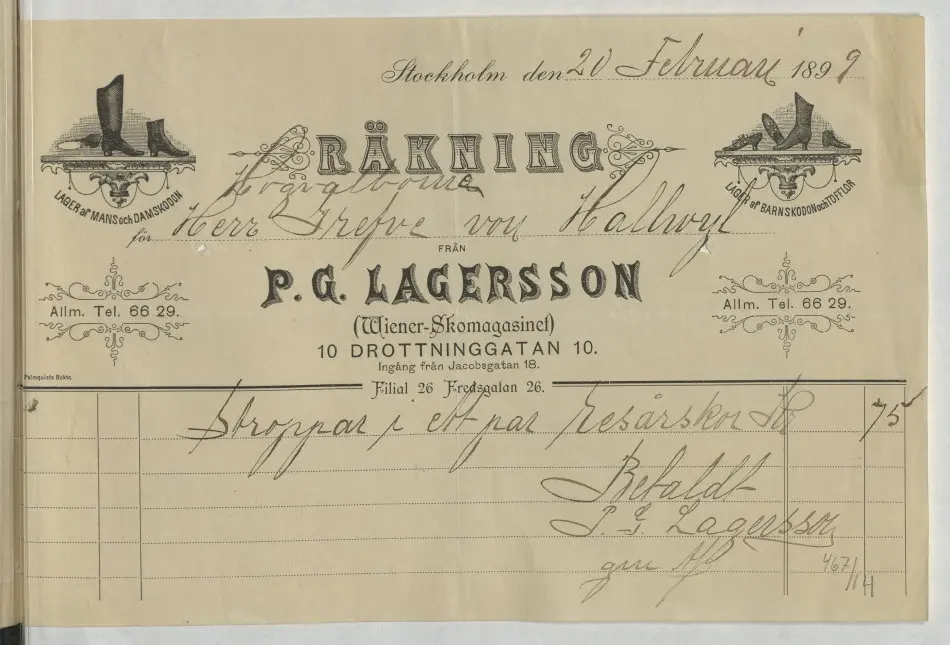 Stockholm den 20 Februari 1899
RÄKNING
LAGER af MANS och DAMSKODON
LAGER af BARNSKODON och TOFFLOR
Högvälborne
för Herr Grefve von Hallwyl
FRÅN
P. G. LAGERSSON
Allm. Tel. 66 29.
Allm. Tel. 66 29.
(Wiener-Skomagasinet)
10 DROTTNINGGATAN 10.
Ingång från Jacobsgatan 18.
Palmquists Boktr.
Filial 26 Fredsgatan 26.
Stroppar i ett par resårskor 75
Betaldt
P. G. Lagersson
gm
467/14